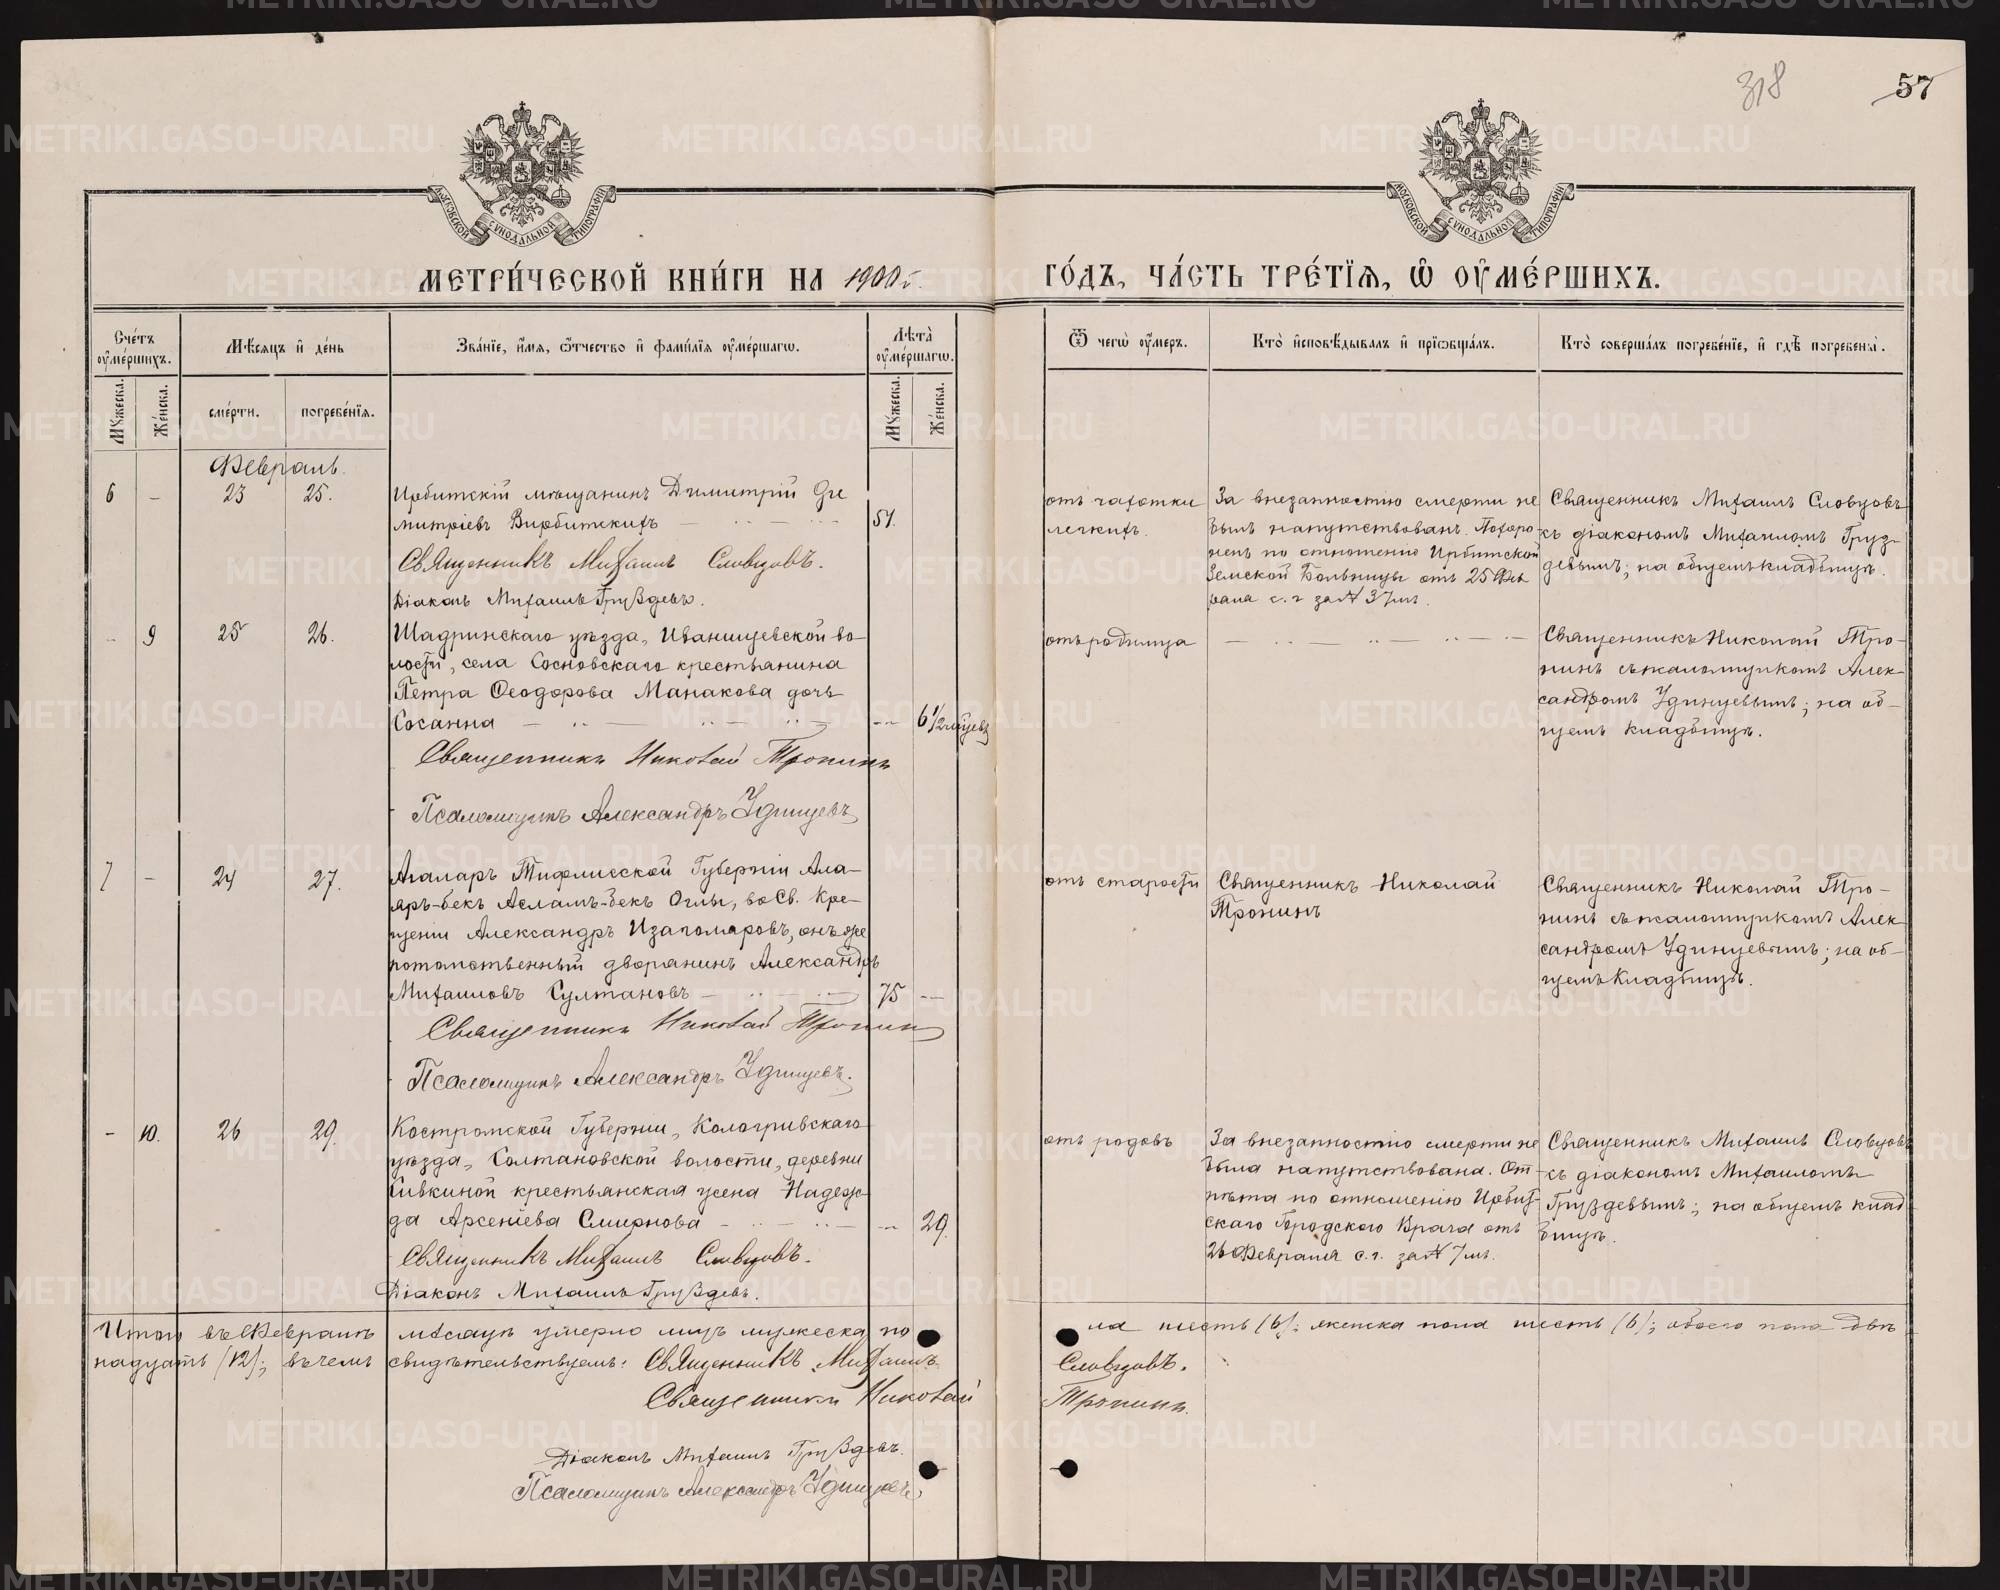 318
57
МОСКОВСКОЙ СѴНОДАЛЬНОЙ ТИПОГРАФІИ
МОСКОВСКОЙ СѴНОДАЛЬНОЙ ТИПОГРАФІИ
МЕТРИ́ЧЕСКОЙ КНИ́ГИ НА 1900 г.
ГО́ДЪ, ЧА́СТЬ ТРЕ́ТІѦ, Ѽ ОУ҆МЕ́РШИХЪ.
Сче́тъ оу҆ме́ршихъ.
Мꙋ́жеска.
Же́нска.
Мѣ́сяцъ и҆ де́нь
сме́рти.
погребе́нїѧ.
Зва́нїе, и҆́мѧ, ѻ҆́тчество и҆ фами́лїѧ оу҆ме́ршагѡ.
Лѣ́та оу҆ме́ршагѡ.
Мꙋ́жеска.
Же́нска.
Ѿ чегѡ̀ оу҆́меръ.
Кто̀ и҆сповѣ́дывалъ и҆ прїѡбща́лъ.
Кто̀ соверша́лъ погребе́нїе, и҆ гдѣ̀ погребены̀.
Февраль.
6 — 23 25.
Ирбитскій мѣщанинъ Димитрій Ди
митріевъ Вирбитскихъ — 51.
Священникъ Михаилъ Словцовъ.
Діаконъ Михаилъ Груздевъ.
отъ чахотки
легкихъ.
За внезапностію смерти не
былъ напутствованъ. Похоро-
ненъ по отношенію Ирбитской
Земской Больницы отъ 25 Фев
раля с. г. за № 37мъ.
Священникъ Михаилъ Словцовъ
съ діакономъ Михаиломъ Груз-
девымъ; на общемъ кладбищѣ.
— 9 25 26.
Шадринскаго уѣзда, Иванищевской во-
лости, села Сосновскаго крестьянина
Петра Ѳеодорова Манакова дочь
Сосанна — 6 1/2 мѣсяцевъ
Священникъ Николай Тронинъ
Псаломщикъ Александръ Удинцевъ
отъ родимца
Священникъ Николай Тро-
нинъ съ псаломщикомъ Алек-
сандромъ Удинцевымъ; на об-
щемъ кладбищѣ.
7 — 24 27.
Агаларъ Тифлисской Губерніи Ала-
яръ-бекъ Асламъ-бекъ Оглы, во Св. Кре-
щеніи Александръ Изагомаровъ, онъ же
потомственный дворянинъ Александръ
Михаиловъ Султановъ — 75 —
Священникъ Николай Тронинъ
Псаломщикъ Александръ Удинцевъ.
отъ старости
Священникъ Николай
Тронинъ
Священникъ Николай Тро-
нинъ съ псаломщикомъ Алек
сандромъ Удинцевымъ; на об-
щемъ кладбищѣ.
— 10. 26 29.
Костромской Губерніи, Кологривскаго
уѣзда, Солтановской волости, деревни
Сивкиной крестьянская жена Надеж-
да Арсеніева Смирнова — 29.
Священникъ Михаилъ Словцовъ.
Діаконъ Михаилъ Груздевъ.
отъ родовъ
За внезапностію смерти не
была напутствована. От-
пѣта по отношенію Ирбит-
скаго Городского Врача отъ
26 Февраля с. г. за № 7мъ.
Священникъ Михаилъ Словцовъ
съ діакономъ Михаиломъ
Груздевымъ; на общемъ клад
бищѣ.
Итого въ Февралѣ мѣсяцѣ умерло лицъ мужеска по
ла шесть (6); женска пола шесть (6); обоего пола двѣ
надцать (12); въ чемъ свидѣтельствуемъ: Священникъ Михаилъ
Словцовъ.
Священникъ Николай
Тронинъ.
Діаконъ Михаилъ Груздевъ.
Псаломщикъ Александръ Удинцевъ.
METRIKI.GASO-URAL.RU